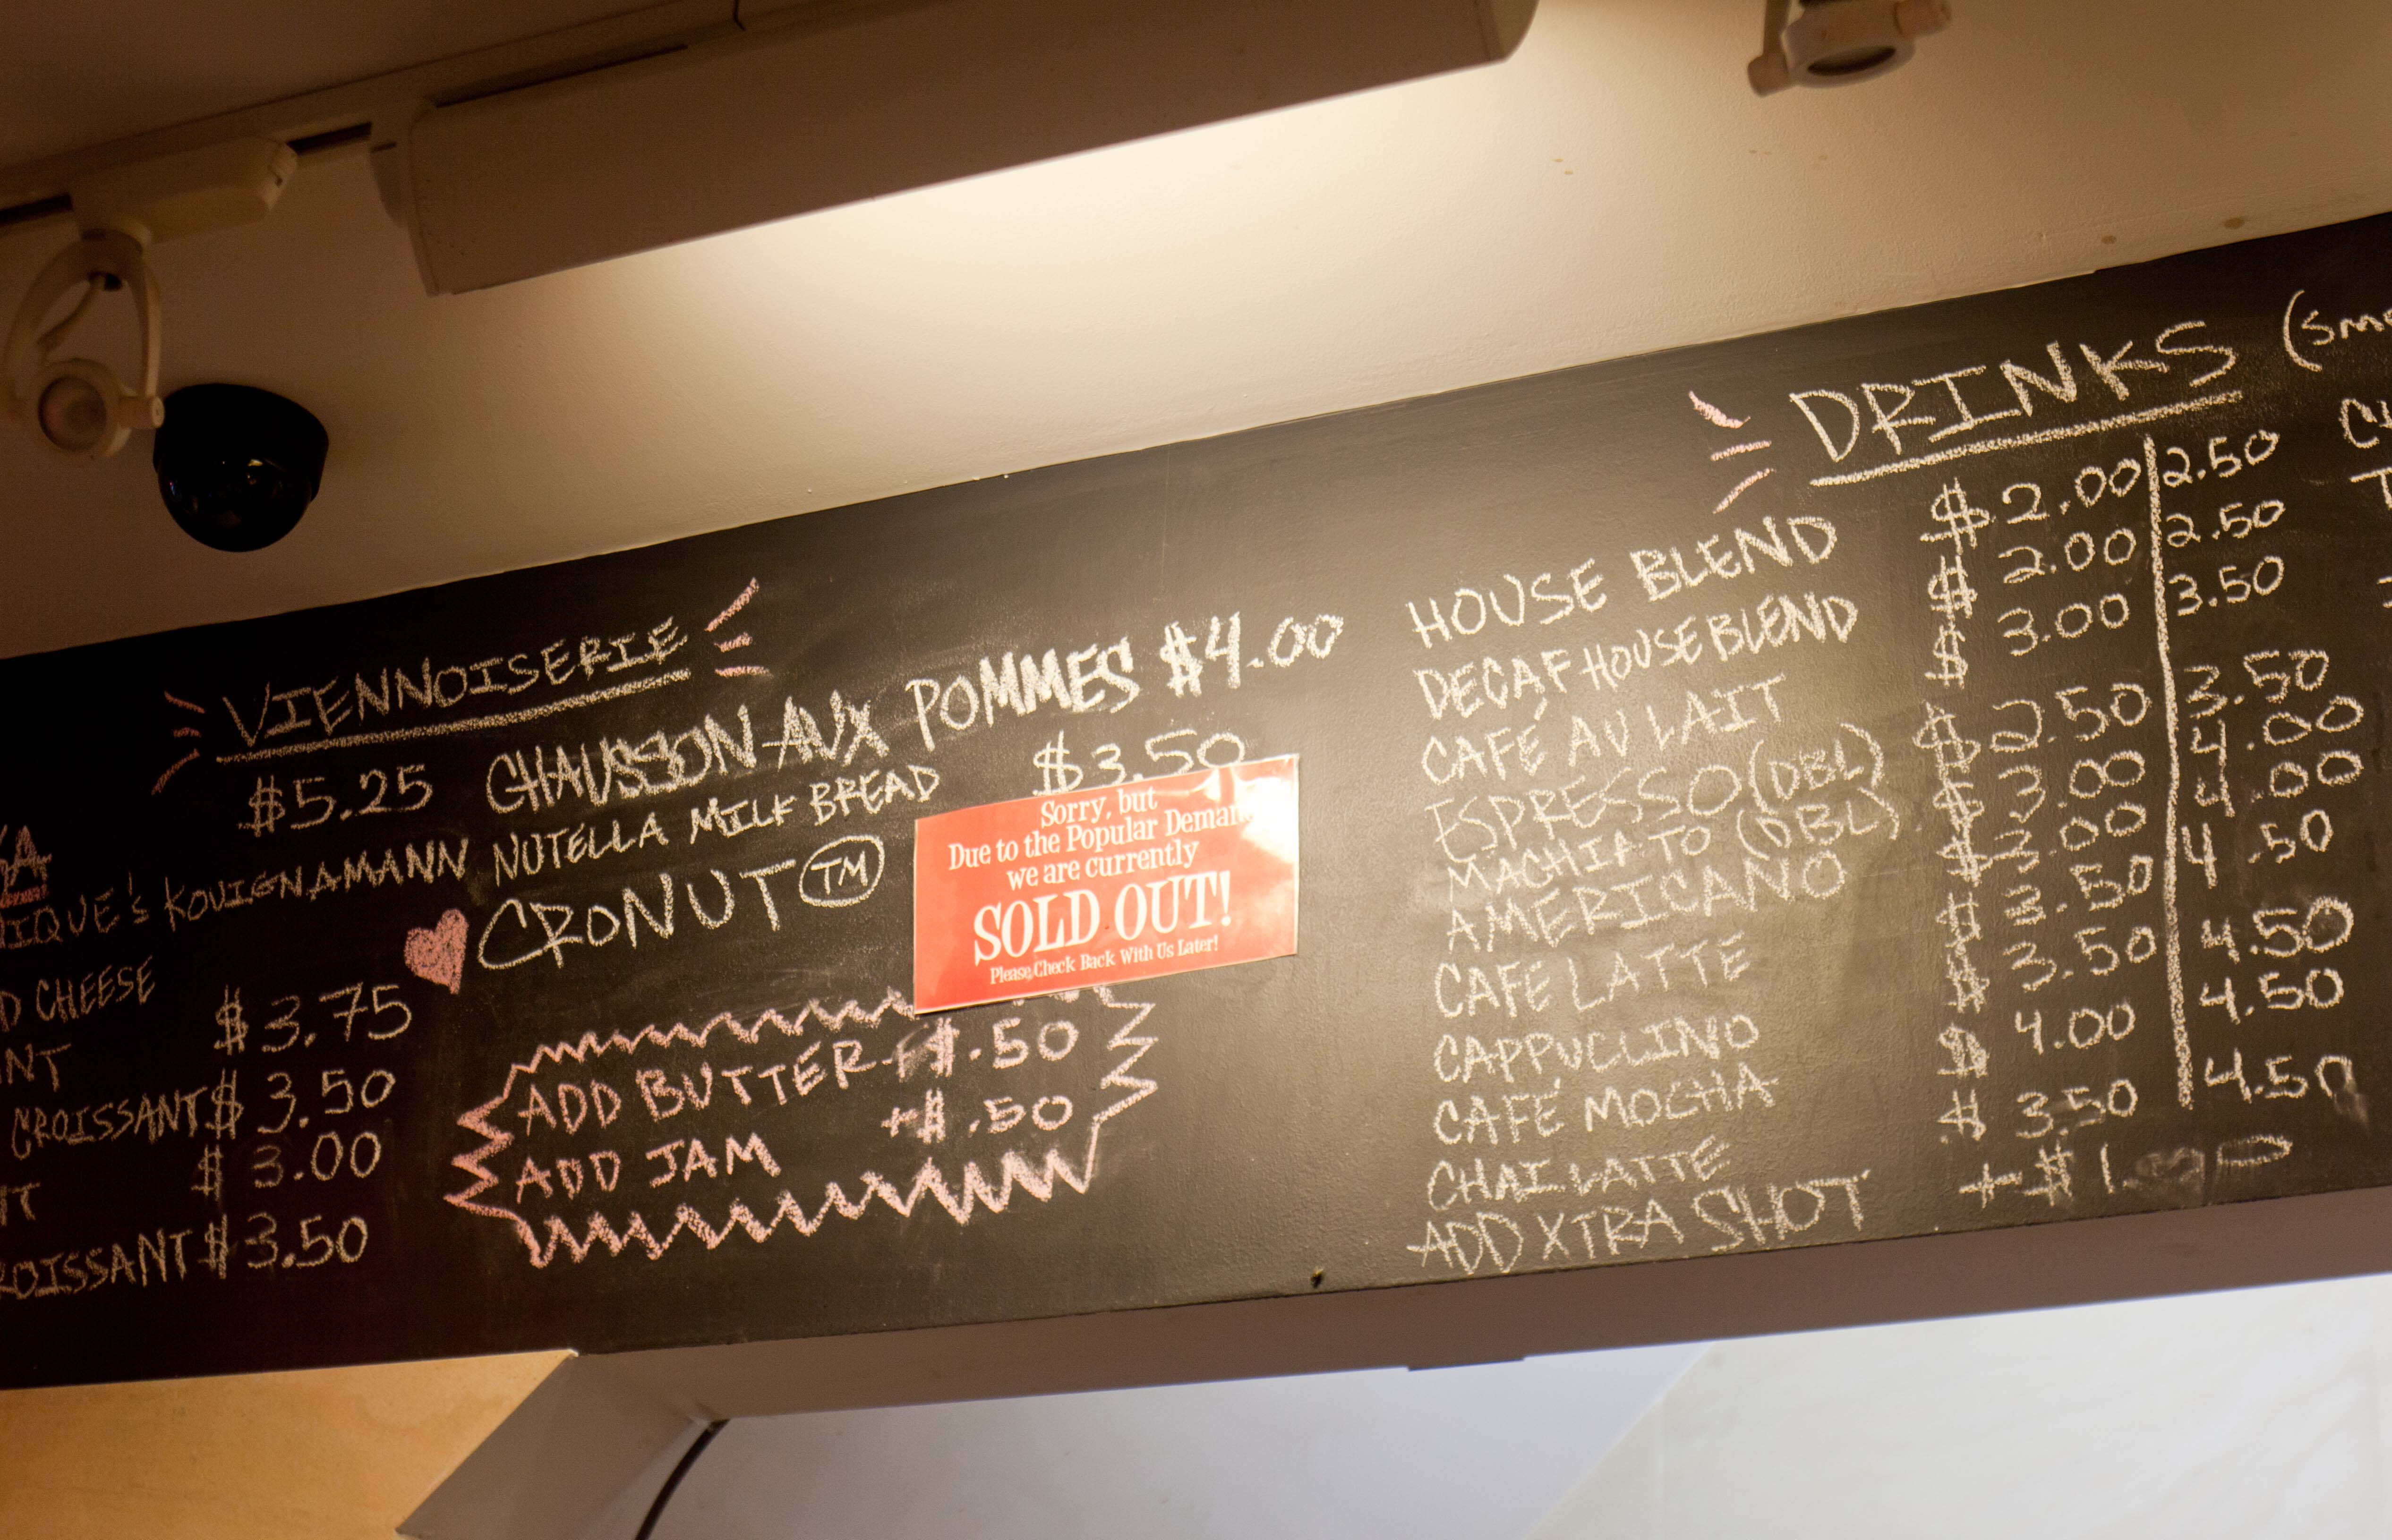 VIENNOISERIE
$5.25
IQUE's KOUIGNAMANN
D CHEESE
$3.75
NT
CROISSANT $3.50
$3.00
CROISSANT $3.50
CHAUSSON AUX POMMES $4.00
NUTELLA MILK BREAD $3.50
CRONUT TM
Sorry, but
Due to the Popular Deman
we are currently
SOLD OUT!
Please, Check Back With Us Later!
ADD BUTTER +$.50
ADD JAM +$.50
DRINKS
HOUSE BLEND $2.00 2.50
DECAF HOUSE BLEND $2.00 2.50
CAFÉ AU LAIT $3.00 3.50
ESPRESSO (DBL) $2.50 3.50
MACHIATO (DBL) $3.00 4.00
AMERICANO $3.00 4.00
CAFE LATTE $3.50 4.50
CAPPUCCINO $3.50 4.50
CAFÉ MOCHA $4.00 4.50
CHAI LATTE $3.50 4.50
ADD XTRA SHOT